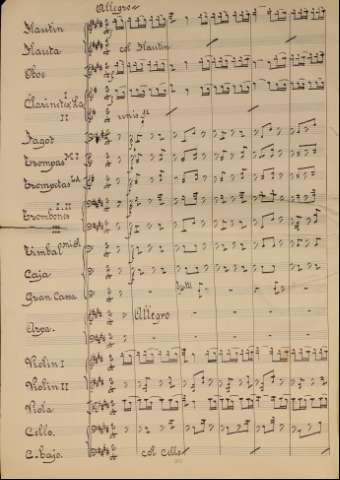 Allegro
Flautin
Flauta col Flautin
Oboe
Clarinetes La I
II unis
Fagot
Trompas Mi
Trompetas La
I II
Trombones
III
Timbal
Caja
Gran Cassa
Allegro
Arpa.
Violin I
Violin II
Viola
Cello.
C. bajo. col Cello